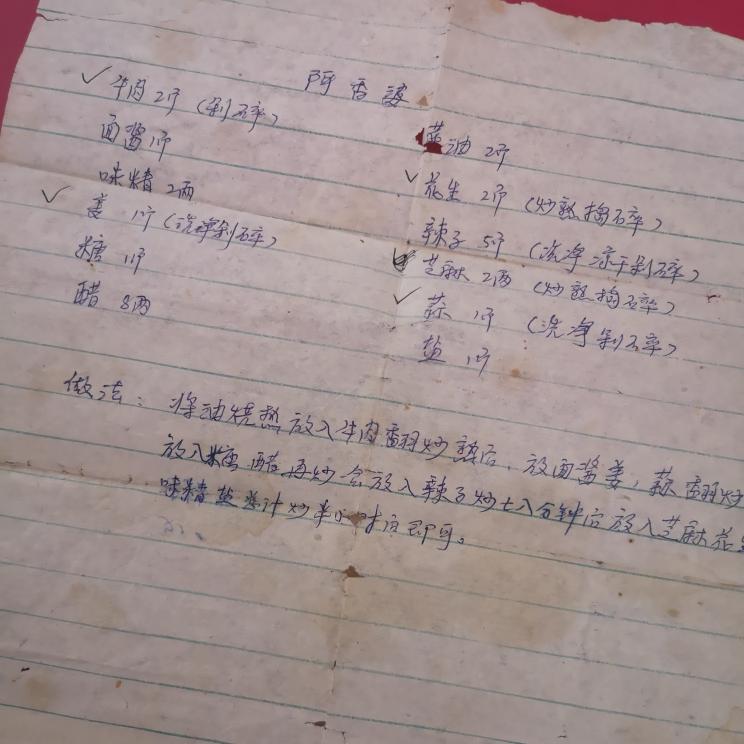 阿香婆
牛肉 2斤 (剁碎)
面酱 1斤
味精 2两
姜 1斤 (洗净剁碎)
糖 1斤
醋 8两
油 2斤
花生 2斤 (炒熟捣碎)
辣子 5斤 (洗净凉干剁碎)
芝麻 2两 (炒熟捣碎)
蒜 1斤 (洗净剁碎)
盐 1斤
做法: 将油烧热放入牛肉翻炒熟后, 放面酱姜, 蒜翻炒
放入糖醋再炒会放入辣子炒七八分钟后放入芝麻花生
味精盐 共计炒半小时后即可。